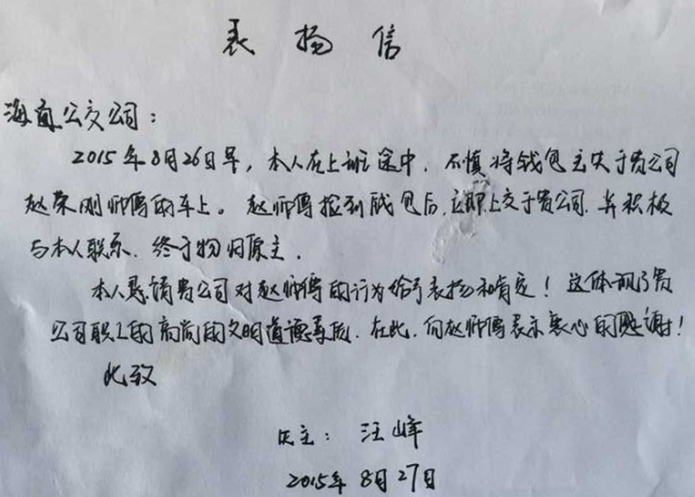 表扬信
海南公交公司：
2015年8月26日早，本人在上班途中，不慎将钱包丢失于贵公司
赵荣刚师傅的车上。赵师傅捡到钱包后，立即上交于贵公司，并积极
与本人联系，终于物归原主。
本人恳请贵公司对赵师傅的行为给予表扬和肯定！这体现了贵
公司职工的高尚的文明道德尊严，在此，向赵师傅表示衷心的感谢！
此致
失主：汪峰
2015年8月27日